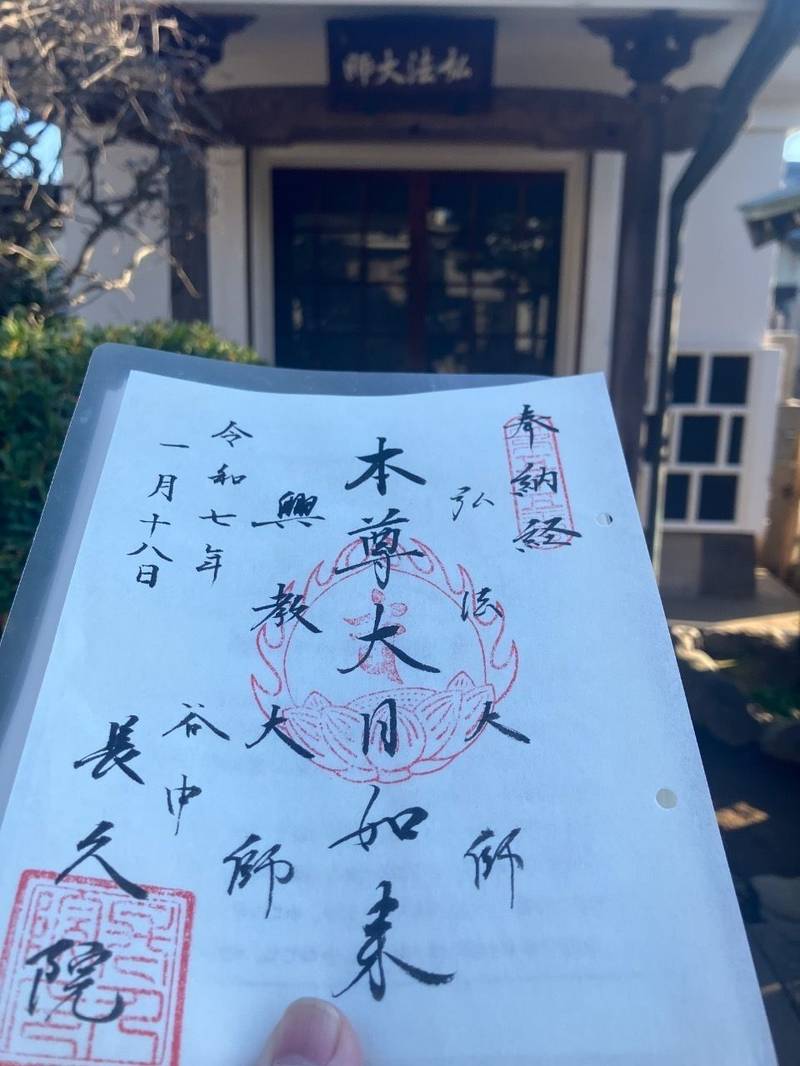 弘法大師
奉納経
弘法大師
本尊大日如来
興教大師
令和七年
一月十八日
谷中
長久院